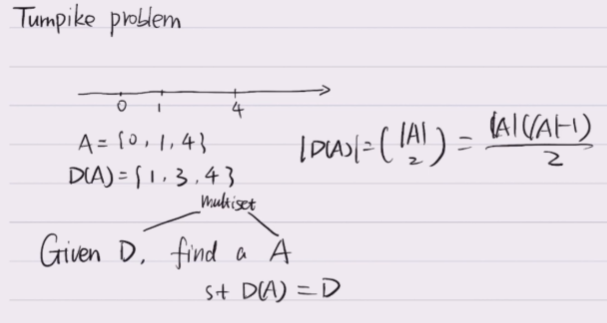 Turnpike problem
0 1 4
A = {0, 1, 4}
D(A) = {1, 3, 4}
|D(A)| = (|A| 2) = |A|(|A|-1) / 2
multiset
Given D, find a A
st D(A) = D